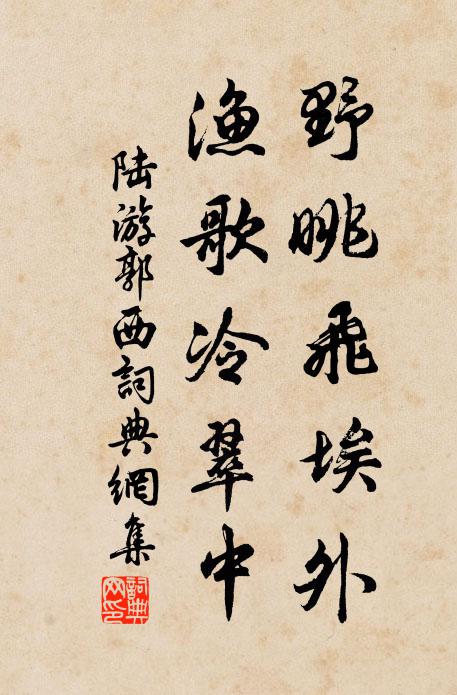 野眺飛埃外
漁歌冷翠中
陸游郭西詞典網集
詞典網印